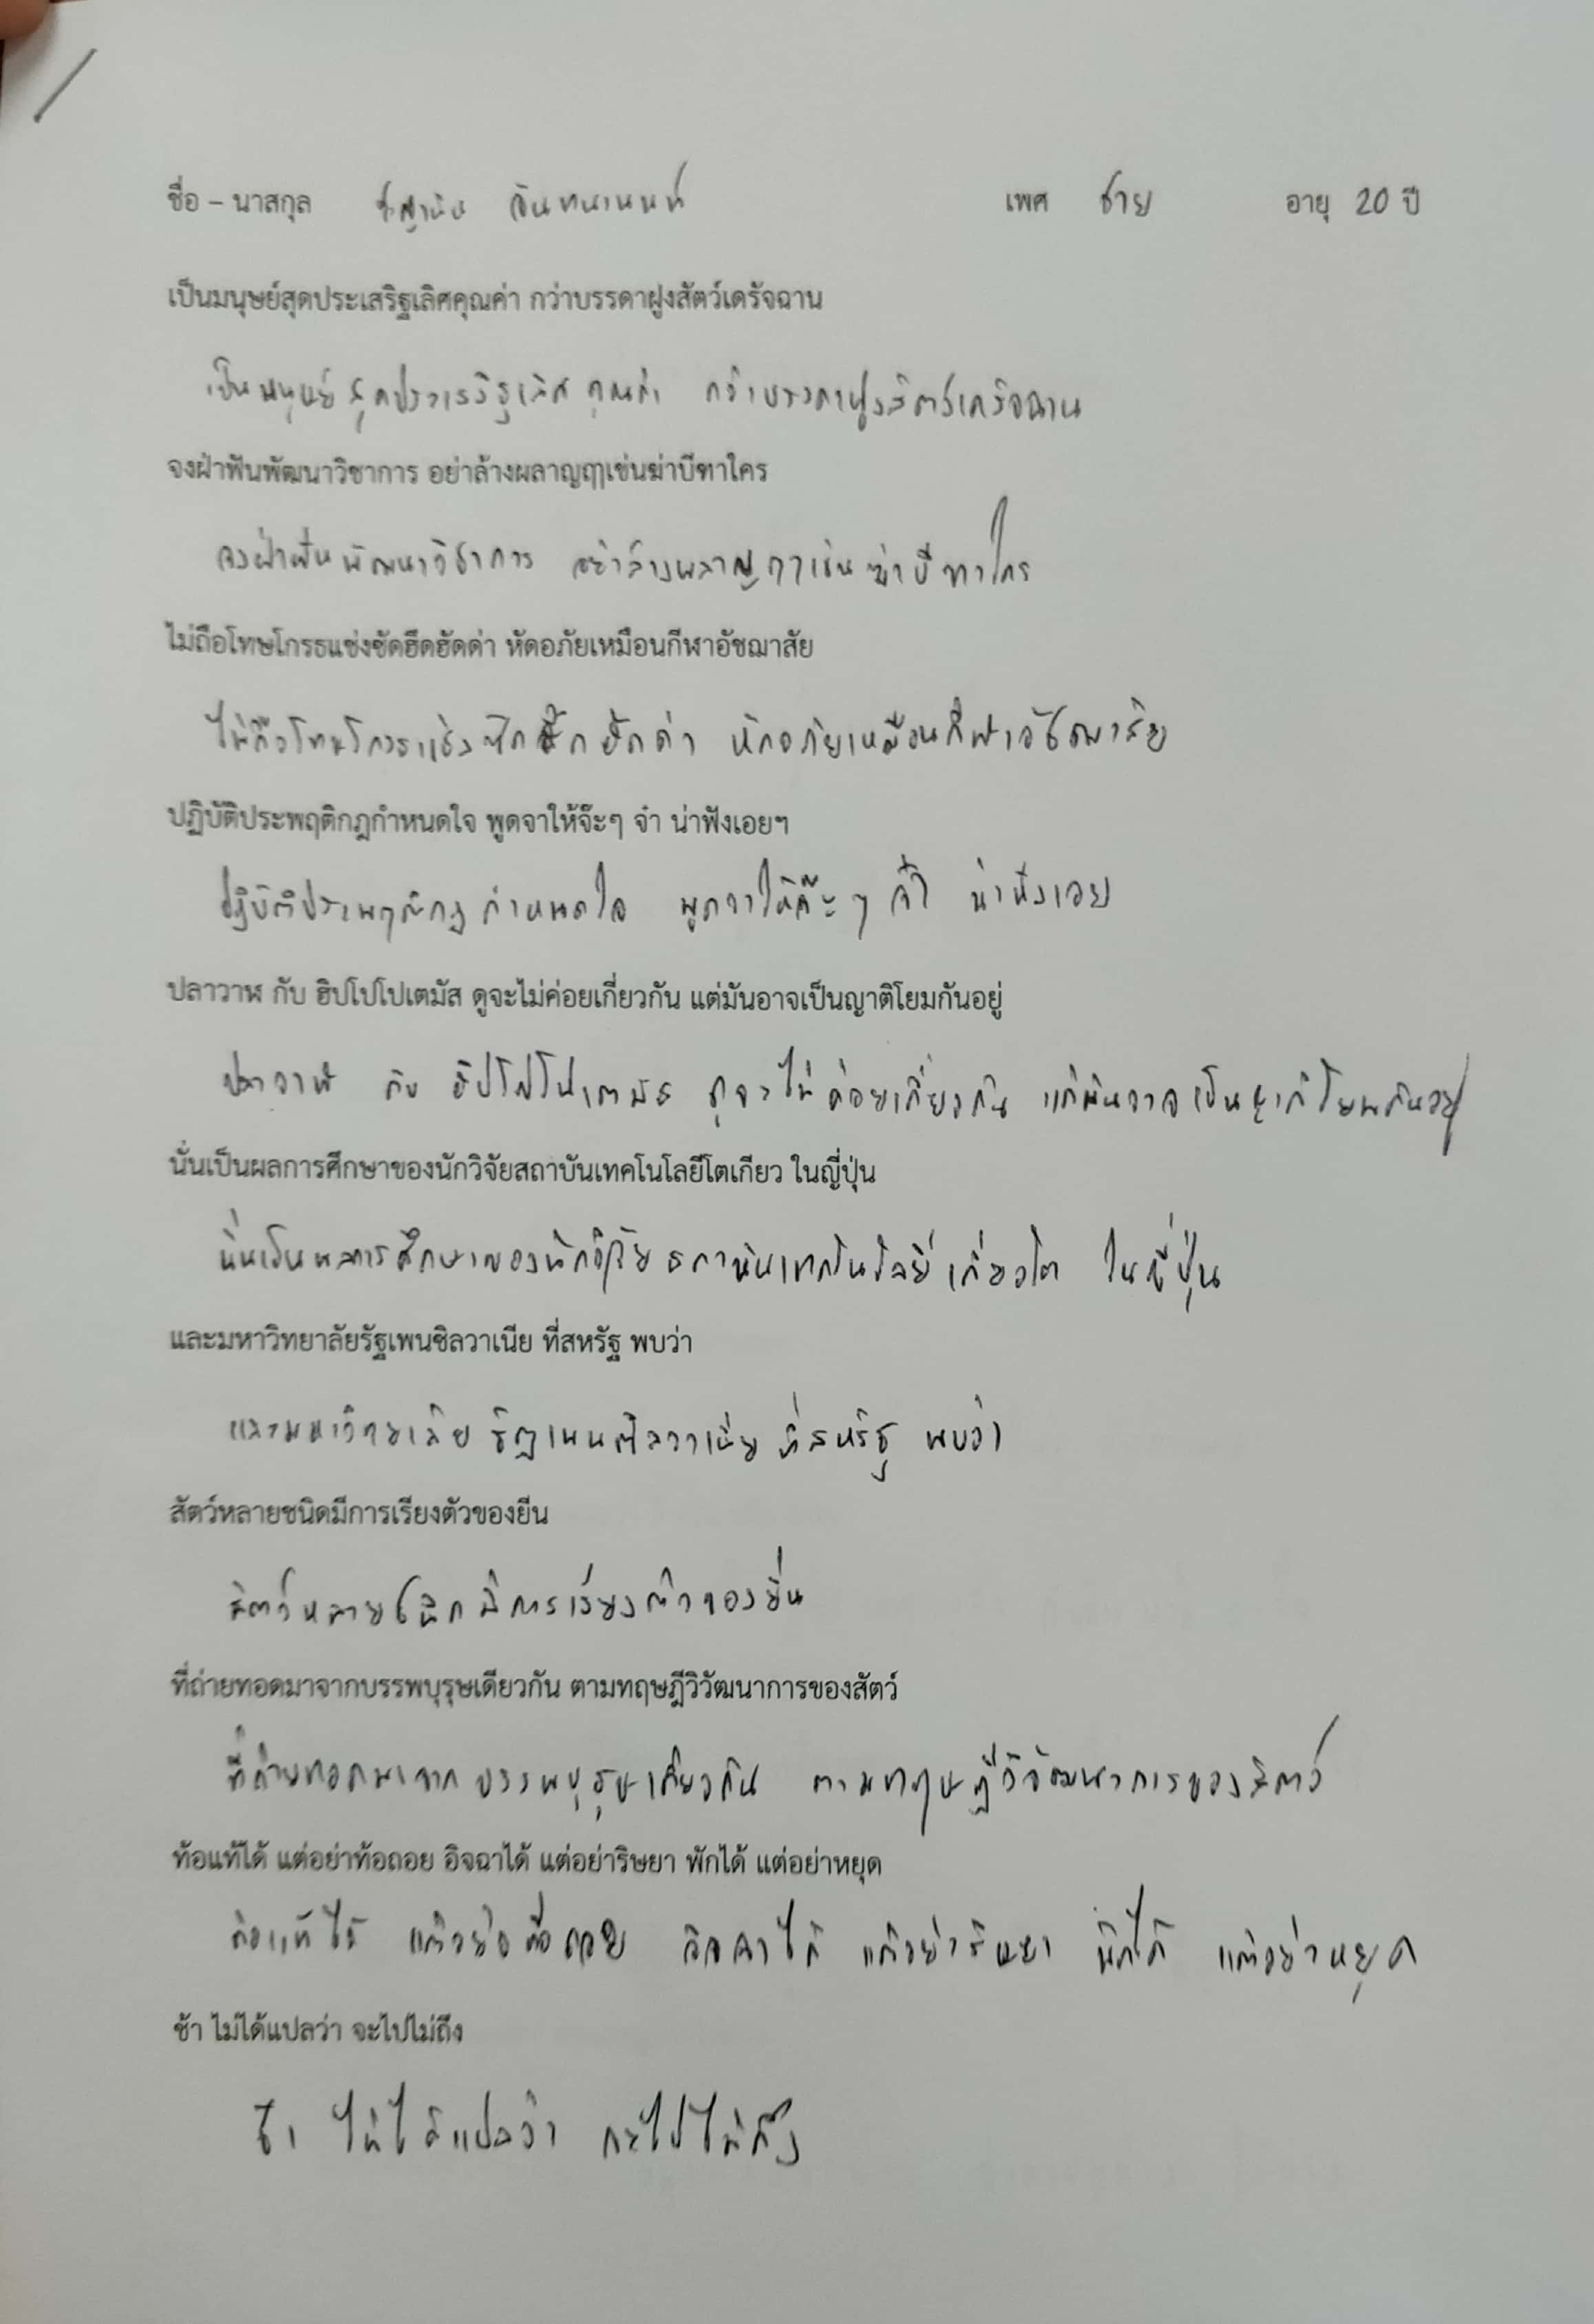 ชื่อ – นาสกุล เพศ ชาย อายุ 20 ปี
เป็นมนุษย์สุดประเสริฐเลิศคุณค่า กว่าบรรดาฝูงสัตว์เดรัจฉาน
เป็นมนุษย์สุดประเสริฐเลิศคุณค่า กว่าบรรดาฝูงสัตว์เดรัจฉาน
จงฝ่าฟันพัฒนาวิชาการ อย่าล้างผลาญฤๅเข่นฆ่าบีฑาใคร
จงฝ่าฟันพัฒนาวิชาการ อย่าล้างผลาญฤๅเข่นฆ่าบีฑาใคร
ไม่ถือโทษโกรธแช่งซัดฮึดฮัดด่า หัดอภัยเหมือนกีฬาอัชฌาสัย
ไม่ถือโทษโกรธแช่งซัดฮึดฮัดด่า หัดอภัยเหมือนกีฬาอัชฌาสัย
ปฏิบัติประพฤติกฎกำหนดใจ พูดจาให้จ๊ะๆ จ๋า น่าฟังเอยฯ
ปฏิบัติประพฤติกฎกำหนดใจ พูดจาให้จ๊ะๆ น่าฟังเอย
ปลาวาฬ กับ ฮิปโปโปเตมัส ดูจะไม่ค่อยเกี่ยวกัน แต่มันอาจเป็นญาติโยมกันอยู่
ปลาวาฬ กับ ฮิปโปโปเตมัส ดูจะไม่ค่อยเกี่ยวกัน แต่มันอาจเป็นญาติโยมกันอยู่
นั่นเป็นผลการศึกษาของนักวิจัยสถาบันเทคโนโลยีโตเกียว ในญี่ปุ่น
นั่นเป็นผลการศึกษาของนักวิจัยสถาบันเทคโนโลยีเกียวโต ในญี่ปุ่น
และมหาวิทยาลัยรัฐเพนซิลวาเนีย ที่สหรัฐ พบว่า
และมหาวิทยาลัยรัฐเพนซิลวาเนีย ที่สหรัฐ พบว่า
สัตว์หลายชนิดมีการเรียงตัวของยีน
สัตว์หลายชนิดมีการเรียงตัวของยีน
ที่ถ่ายทอดมาจากบรรพบุรุษเดียวกัน ตามทฤษฎีวิวัฒนาการของสัตว์
ที่ถ่ายทอดมาจากบรรพบุรุษเดียวกัน ตามทฤษฎีวิวัฒนาการของสัตว์
ท้อแท้ได้ แต่อย่าท้อถอย อิจฉาได้ แต่อย่าริษยา พักได้ แต่อย่าหยุด
ท้อแท้ได้ แต่อย่าท้อถอย อิจฉาได้ แต่อย่าริษยา พักได้ แต่อย่าหยุด
ช้า ไม่ได้แปลว่า จะไปไม่ถึง
ช้า ไม่ได้แปลว่า จะไปไม่ถึง